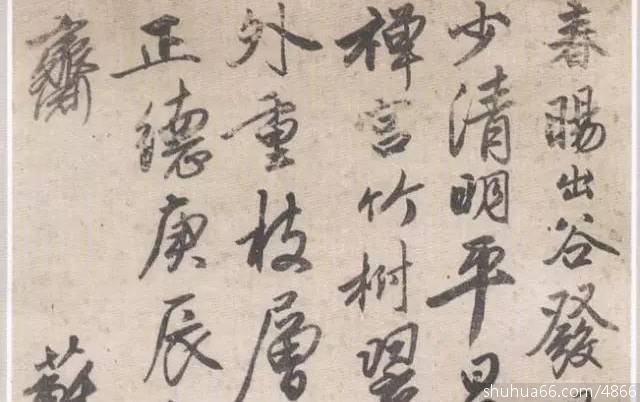 春暘出谷發
少清明平
禪宫竹樹翠
外重枝層
正德庚辰
齋
shuhua66.com/4866